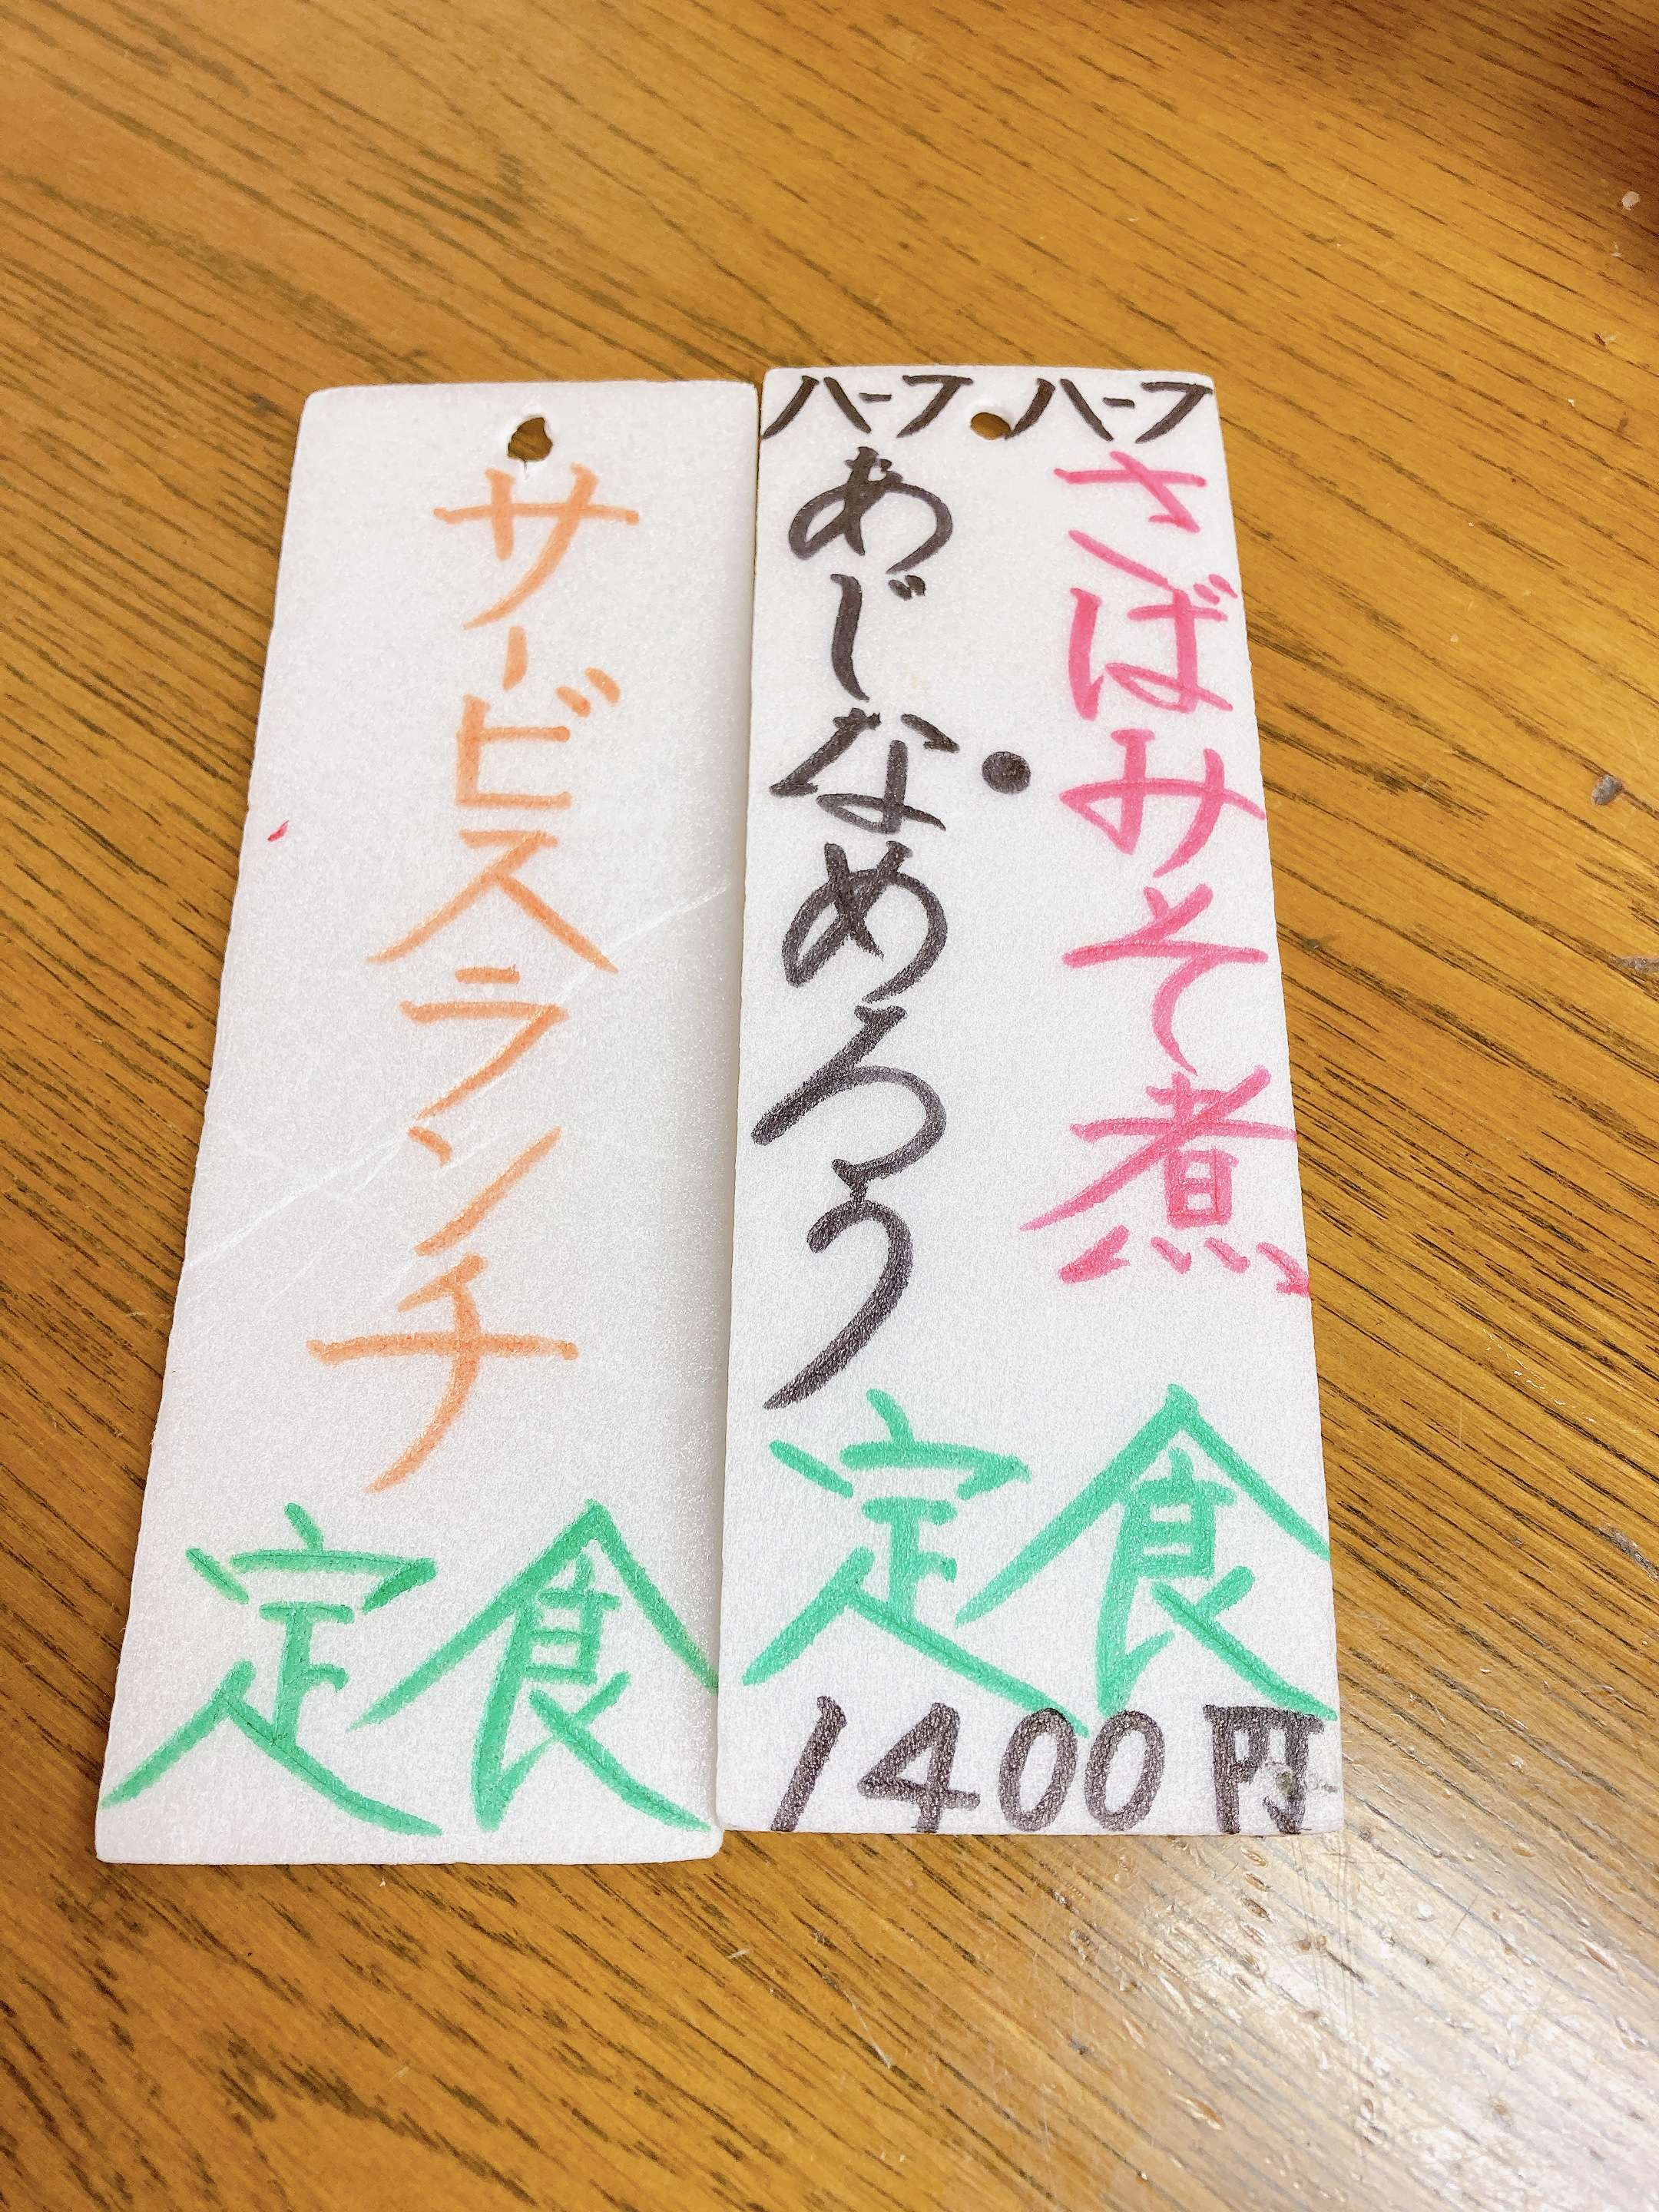 サービスランチ
定食
ハーフ・ハーフ
さばみそ煮
・
あじなめろう
定食
1400円